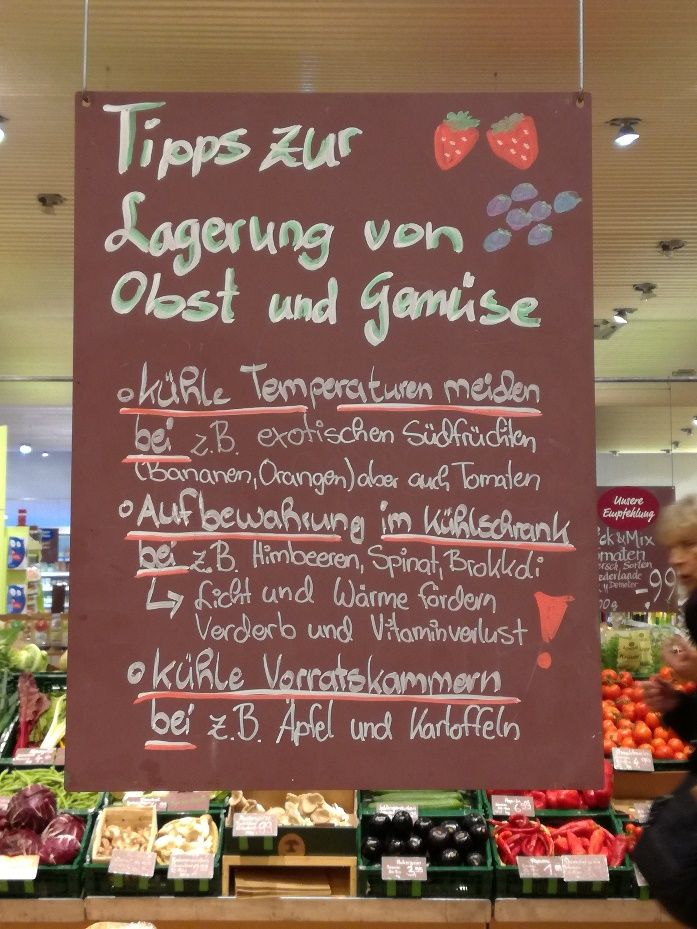 Tipps zur
Lagerung von
Obst und Gemüse
kühle Temperaturen meiden
bei z.B. exotischen Südfrüchten
(Bananen, Orangen) aber auch Tomaten
Aufbewahrung im Kühlschrank
bei z.B. Himbeeren, Spinat, Brokkoli
↳ Licht und Wärme fördern
Verderb und Vitaminverlust !
kühle Vorratskammern
bei z.B. Äpfel und Kartoffeln
Unsere
Empfehlung
-.99